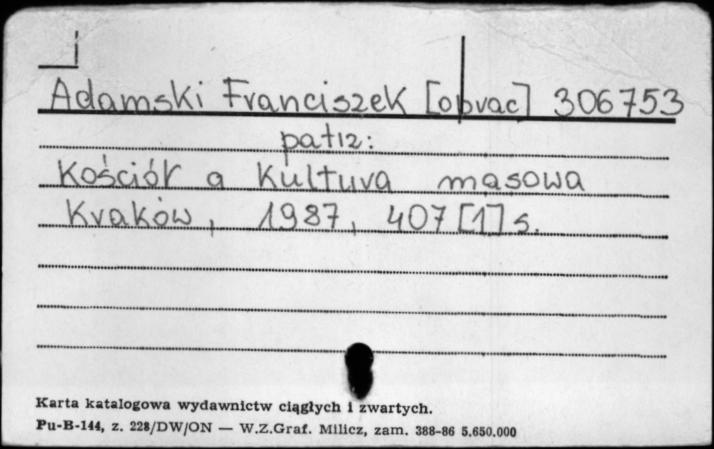 Adamski Franciszek [oprac] 306753
patrz:
Kościół a kultura masowa
Kraków, 1987, 407 [1] s.
Karta katalogowa wydawnictw ciągłych i zwartych.
Pu-B-144, z. 228/DW/ON — W.Z.Graf. Milicz, zam. 388-86 5.650.000